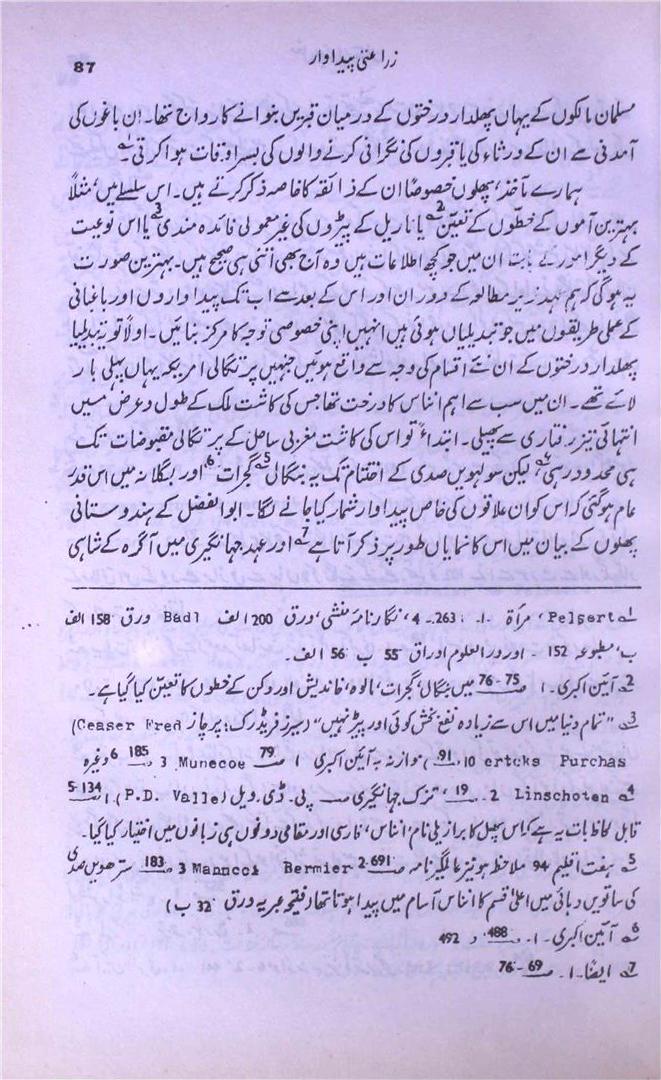 زراعتی پیداوار
87
مسلمان مالکوں کے یہاں پھلدار درختوں کے درمیان قبریں بنوانے کا رواج تھا۔ ان باغوں کی
آمدنی سے ان کے ورثاء کی یا قبروں کی نگرانی کرنے والوں کی بسر اوقات ہوا کرتی۔1
ہمارے مآخذ، پھلوں خصوصاً ان کے ذائقہ کا خاصہ ذکر کرتے ہیں۔ اس سلسلے میں، مثلاً
بہترین آموں کے خطّوں کے تعیّن2 یا ناریل کے پیڑوں کی غیر معمولی فائدہ مندی3 یا اس نوعیت
کے دیگر امور کے بابت ان میں جو کچھ اطلاعات ہیں وہ آج بھی اتنی ہی صحیح ہیں۔ بہترین صورت
یہ ہوگی کہ ہم عہد زیر مطالعہ کے دوران اور اس کے بعد سے اب تک پیداواروں اور باغبانی
کے عملی طریقوں میں جو تبدیلیاں ہوئی ہیں انہیں اپنی خصوصی توجہ کا مرکز بنائیں۔ اولاً تو یہ تبدیلیا
پھلدار درختوں کے ان نئے اقسام کی وجہ سے واقع ہوئیں جنہیں پرتگالی امریکہ یہاں پہلی بار
لائے تھے۔ ان میں سب سے اہم انناس کا درخت تھا جس کی کاشت ملک کے طول و عرض میں
انتہائی تیز رفتاری سے پھیلی۔ ابتداءً تو اس کی کاشت مغربی ساحل کے پرتگالی مقبوضات تک
ہی محدود رہی4، لیکن سولہویں صدی کے اختتام تک یہ بنگال5، گجرات6، اور بگلانہ میں اس قدر
عام ہوگئی کہ اس کو ان علاقوں کی خاص پیداوار شمار کیا جانے لگا۔ ابوالفضل کے ہندوستانی
پھلوں کے بیان میں اس کا نمایاں طور پر ذکر آتا ہے7 اور عہد جہانگیری میں آگرہ کے شاہی
1 Pelsert، مرأۃ ۔ا۔ 263۔ 4، نگارنامۂ منشی، ورق 200 الف Badl ورق 158 الف
ب، مطبوعہ 152 ۔ اور دورالعلوم اوراق 55 ب 56 الف۔
2 آئین اکبری۔ ا ص 75-76 میں بنگال، گجرات، مالوہ، خاندیش اور دکن کے خطوں کا تعیّن کیا گیا ہے۔
3 ”تمام دنیا میں اس سے زیادہ نفع بخش کوئی اور پیڑ نہیں“ (سیزر فریڈرک؛ پرچاز Ceaser Fred)
ertcks Purchas 10، ص 91) موازنہ بہ آئین اکبری ا ص 79 Munecoe 3 ص 185 6 وغیرہ
4 Linschoten 2۔ ص 19، تزک جہانگیری ص پی۔ ڈی۔ ویل (P.D. Valle) ا ص 134-5
قابل لحاظ بات یہ ہے کہ اس پھل کا برازیلی نام، انناس، فارسی اور مقامی دونوں ہی زبانوں میں اختیار کیا گیا۔
5 ہفت اقلیم 94 ملاحظہ ہو نیز عالمگیرنامہ ص 691-2 Bermier Manncci 3 ص 183 سترھویں صدی
کی ساتویں دہائی میں اعلیٰ قسم کا انناس آسام میں پیدا ہوتا تھا (فتحیہ عبریہ ورق 32 ب)
6 آئین اکبری۔ ا۔ ص 488 و 492
7 ایضاً۔ ا۔ ص 69-76